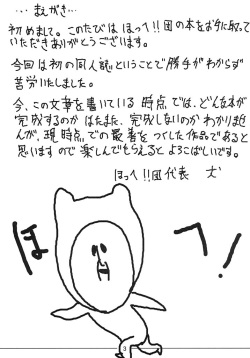 …まえがき…
初めまして。このたびは ほっへ!!団の本をお手に取って
いただきありがとうございます。
今回は初の同人誌ということで勝手がわからず
苦労いたしました。
今、この文章を書いている 時点 では、どんな本が
完成するのか はたまた、完成しないのか わかりませ
んが、現時点での最善を つくした作品であると
思いますので 楽しんでもらえると よろこばしいです。
ほっへ!!団代表
ほ
へ!
3